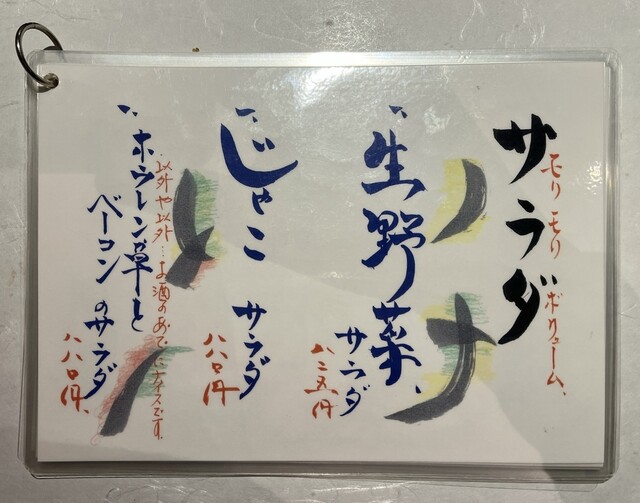 サラダ
モリモリ ボリューム、
生野菜、
サラダ
八二五円
じゃこ サラダ
八八〇円
以外や以外…お酒のあてにナイスです。
ホウレン草と
ベーコン のサラダ
八八〇円、